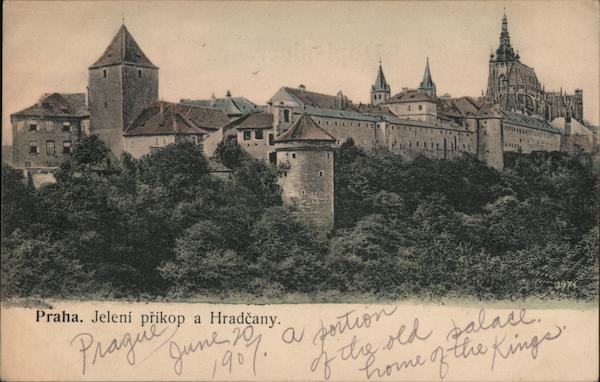 3971
Praha. Jelení příkop a Hradčany.
Prague June 20
1907.
A portion
of the old palace.
home of the Kings.